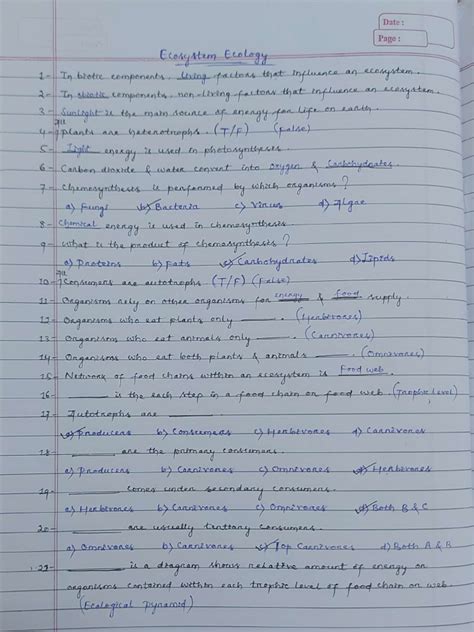 Date :
Page :
Ecosystem Ecology
1- In biotic components, living factors that influence an ecosystem.
2- In abiotic components, non-living factors that influence an ecosystem.
3- Sunlight is the main source of energy for life on earth.
4- All plants are heterotrophs. (T/F) (False)
5- Light energy is used in photosynthesis.
6- Carbon dioxide & water convert into oxygen & Carbohydrates.
7- Chemosynthesis is performed by which organisms?
a) Fungi b) Bacteria c) Virus d) Algae
8- Chemical energy is used in chemosynthesis
9- What is the product of chemosynthesis?
a) Proteins b) Fats c) Carbohydrates d) Lipids
10- All Consumers are autotrophs. (T/F) (False)
11- Organisms rely on other organisms for energy & food supply.
12- Organisms who eat plants only ____. (Herbivores)
13- Organisms who eat animals only ____. (Carnivores)
14- Organisms who eat both plants & animals ____. (Omnivores)
15- Network of food chains within an ecosystem is Food web.
16- ____ is the each step in a food chain or food web. (Trophic level)
17- Autotrophs are ____
a) Producers b) Consumers c) Herbivores d) Carnivores
18- ____ are the primary consumers.
a) Producers b) Carnivores c) Omnivores d) Herbivores
19- ____ comes under secondary consumers.
a) Herbivores b) Carnivores c) Omnivores d) Both B & C
20- ____ are usually tertiary consumers.
a) Omnivores b) Carnivores c) Top Carnivores d) Both A & B
21- ____ is a diagram shows relative amount of energy or
organisms contained within each trophic level of food chain or web.
(Ecological Pyramid)